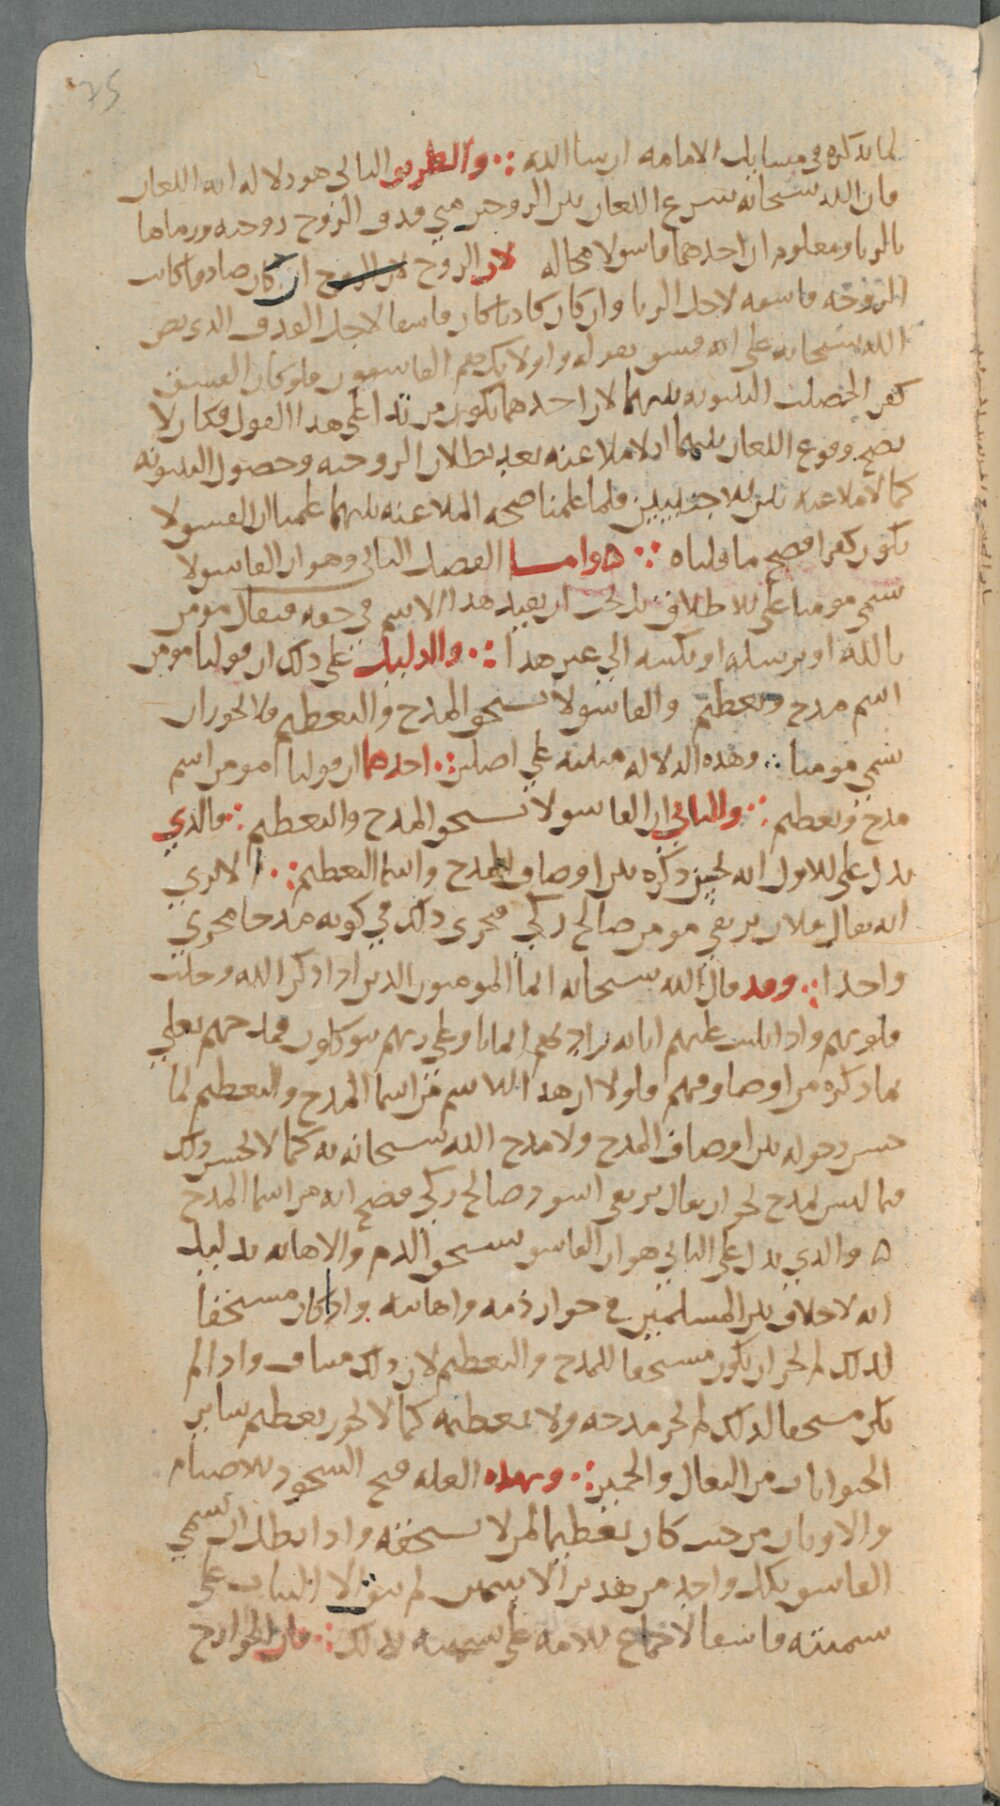 75
لما نذكره في مسايل الامامه ان شا الله والطريق الثاني هو دلاله ايه اللعان
فان الله سبحانه شرع اللعان بين الزوجين متى قذف الزوج زوجته ورماها
بالزنا ومعلوم ان احدهما فاسق لا محاله لان الزوج ان كان صادقا كانت
الزوجه فاسقه لاجل الزنا وان كان كاذبا كان فاسقا لاجل القذف الذي نص
الله سبحانه على انه فسق بقوله واولايك هم الفاسقون فلو كان الفسق
كفرا لحصلت البينونه بينهما لان احدهما يكون مرتدا على هذا القول فكان لا
يصح وقوع اللعان بينهما اذ لا ملاعنه بعد بطلان الزوجيه وحصول البينونه
كما لا ملاعنه بين الاجنبيين فلما علمنا صحه الملاعنه بينهما علمنا ان الفسق لا
يكون كفرا فصح ما قلناه واما الفصل الثاني وهو ان الفاسق لا
سمى مومنا على الاطلاق بل يجب ان يقيد هذا الاسم في حقه فيقال مومن
بالله او برسله او بكتبه الى غير هذا والدليل على ذلك ان قولنا مومن
اسم مدح وتعظيم والفاسق لا يستحق المدح والتعظيم فلا يجوز ان
يسمى مومنا وهذه الدلاله مبنيه على اصلين احدهما ان قولنا مومن اسم
مدح وتعظيم والثاني ان الفاسق لا يستحق المدح والتعظيم فالذي
يدل على الاول انه يحسن ذكره بين اوصاف المدح واسما التعظيم الا ترى
انه يقال فلان بر تقي مومن صالح زكي فجرى ذلك في كونه مدحا مجرى
واحدا وقد قال الله سبحانه انما المومنون الذين اذا ذكر الله وجلت
قلوبهم واذا تليت عليهم اياته زادتهم ايمانا وعلى ربهم يتوكلون فمدحهم تعالى
بما ذكره من اوصافهم فلولا ان هذا الاسم من اسما المدح والتعظيم لما
حسن دخوله بين اوصاف المدح ولا مدح الله سبحانه به كما لا يحسن ذلك
فيما ليس بمدح نحو ان يقال بر تقي اسود صالح زكي فصح انه من اسما المدح
ه والذي يدل على الثاني هو ان الفاسق يستحق الذم والاهانه بدليل
انه لا خلاف بين المسلمين في جواز ذمه واهانته واذا كان مستحقا
لذلك لم يجز ان يكون مستحقا للمدح والتعظيم لان ذلك متناف واذا لم
يكن مستحقا لذلك لم يجز مدحه ولا تعظيمه كما لا يجوز تعظيم ساير
الحيوانات من البغال والحمير وبهذه العله قبح السجود للاصنام
والاوثان من حيث كان تعظيما لمن لا يستحقه واذا بطل ان يسمى
الفاسق بكل واحد من هذين الاسمين لم يبق الا الثبات على
تسميته فاسقا لاجماع الامه على تسميته بذلك فان الخوارج